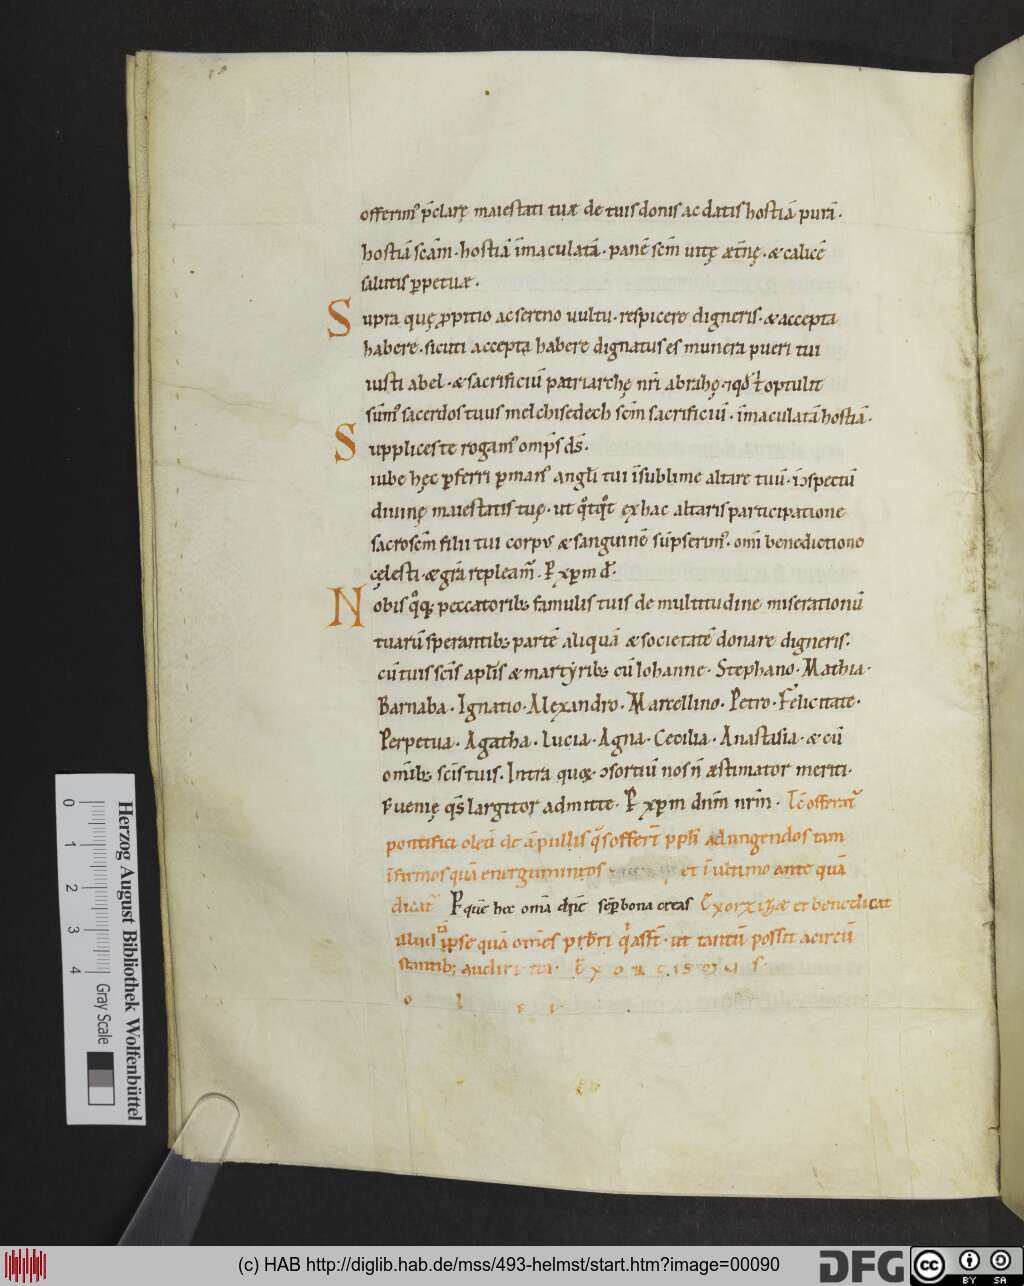 offerim⁹ p̄clarę maiestati tuæ de tuis donis ac datis hostiā purā·
hostiā scām· hostiā īmaculatā· panē scm̄ uitę æt̄nę· & calicē
salutis ꝑpetuæ·
Supra quę ꝓpitio ac sereno uultu· respicere digneris· & accepta
habere· sicuti accepta habere dignatus es munera pueri tui
iusti abel· & sacrificiū patriarchę nr̄i abrahę· ⁊ qđ t̄ optulit
sūm⁹ sacerdos tuus melchisedech scm̄ sacrificiū· īmaculatā hostiā·
Supplices te rogam⁹ omp̄s ds̄·
iube hęc ꝑferri ꝑ man⁹ angl̄i tui ī sublime altare tuū· ī ↄspectū
diuinę maiestatis tuę· ut qͦtqͦt ex hac altaris participatione
sacrosc̄m filii tui corpus & sanguinē sūpserim⁹· om̄i benedictione
cęlesti· & gr̄a repleam̄· P xp̄m d·
Nobis qͦq; peccatorib; famulis tuis de multitudine miserationū
tuarū sperantib; partē aliquā & societatē donare digneris·
cū tuis sc̄is apl̄is & martyrib; cū Iohanne· Stephano· Mathia·
Barnaba· Ignatio· Alexandro· Marcellino· Petro· Felicitate·
Perpetua· Agatha· Lucia· Agna· Cecilia· Anastasia· & cū
om̄ib; sc̄is tuis· Intra quoꝝ ↄsortiū nos n̄ æstimator meriti·
s; uenię qs̄ largitor admitte· P xp̄m dn̄m nr̄m· Tc̄ offerat̄
pontifici oleū de āpullis qͣs offerт̄ ppl̄i ad ungendos tam
īfirmos quā energuminos et ī ultimo ante quā
dicat̄ P quē hec om̄ia dn̄e sēp bona creas Exorxizæ et benedicat
illud tā ipse quā om̄es pr̄bri qͥ assт̄· ut tantū possit a circū
stantib; audiri ita· E X O R C I S M U S
O L E I